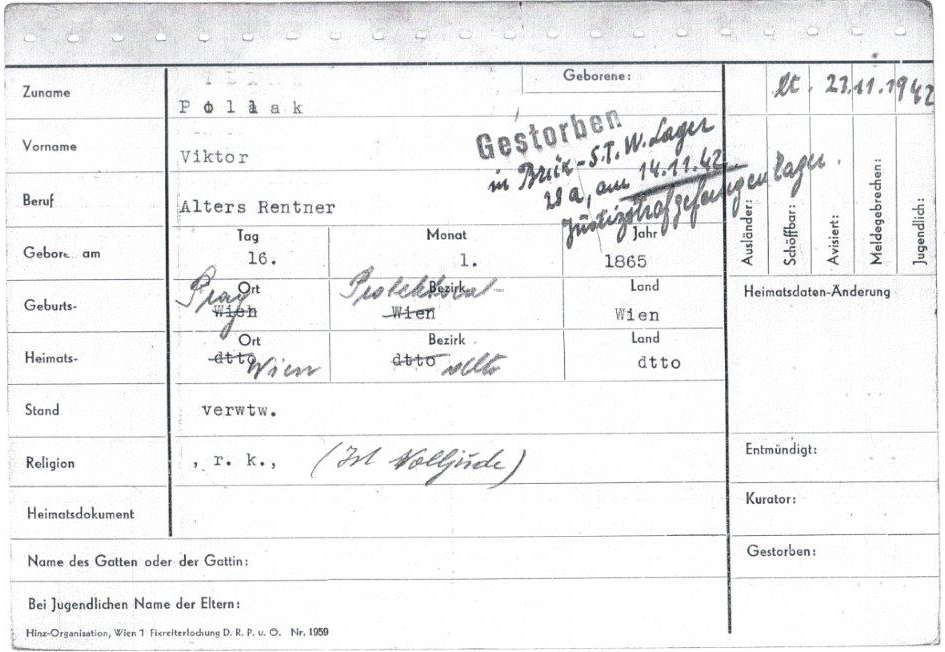 Zuname
Pollak
Geborene:
lt. 23.11.1942
Vorname
Viktor
Gestorben
in Brüx - S.T.W. Lager
28 a, am 14.11.42
Justizstrafgefangenenlager.
Beruf
Alters Rentner
Ausländer:
Schöffbar:
Avisiert:
Meldegebrechen:
Jugendlich:
Tag Monat Jahr
Gebore am 16. 1. 1865
Heimatsdaten-Änderung
Ort Bezirk Land
Prag Protektorat
Geburts- Wien Wien Wien
Ort Bezirk Land
Heimats- dtto Wien dtto dtto dtto
Stand verwtw.
Religion , r. k., (Ist Volljude)
Entmündigt:
Kurator:
Heimatsdokument
Gestorben:
Name des Gatten oder der Gattin:
Bei Jugendlichen Name der Eltern:
Hinz-Organisation, Wien 1 Fixreiterlochung D. R. P. u. O. Nr. 1959